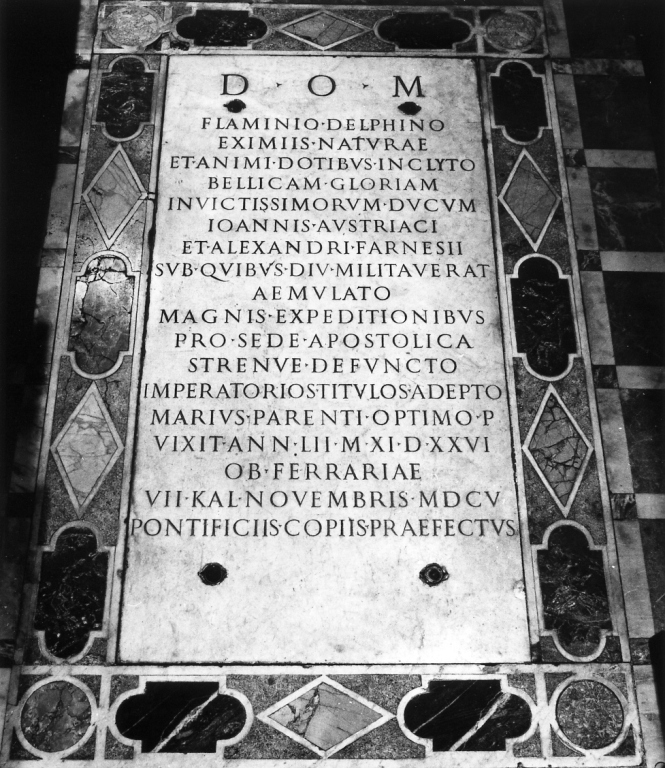 D · O · M
FLAMINIO·DELPHINO
EXIMIIS·NATVRAE
ET·ANIMI·DOTIBVS·INCLYTO
BELLICAM·GLORIAM
INVICTISSIMORVM·DVCVM
IOANNIS·AVSTRIACI
ET·ALEXANDRI·FARNESII
SVB·QVIBVS·DIV·MILITAVERAT
AEMVLATO
MAGNIS·EXPEDITIONIBVS
PRO·SEDE·APOSTOLICA
STRENVE·DEFVNCTO
IMPERATORIOS·TITVLOS·ADEPTO
MARIVS·PARENTI·OPTIMO·P
VIXIT·ANN·LII·M·XI·D·XXVI
OB·FERRARIAE
VII·KAL·NOVEMBRIS·MDCV
PONTIFICIIS·COPIIS·PRAEFECTVS